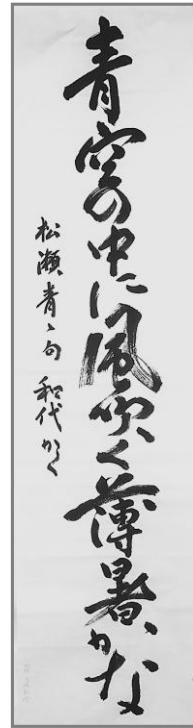 青空の中に風吹く薄暑かな
松瀬青々句 和代かく